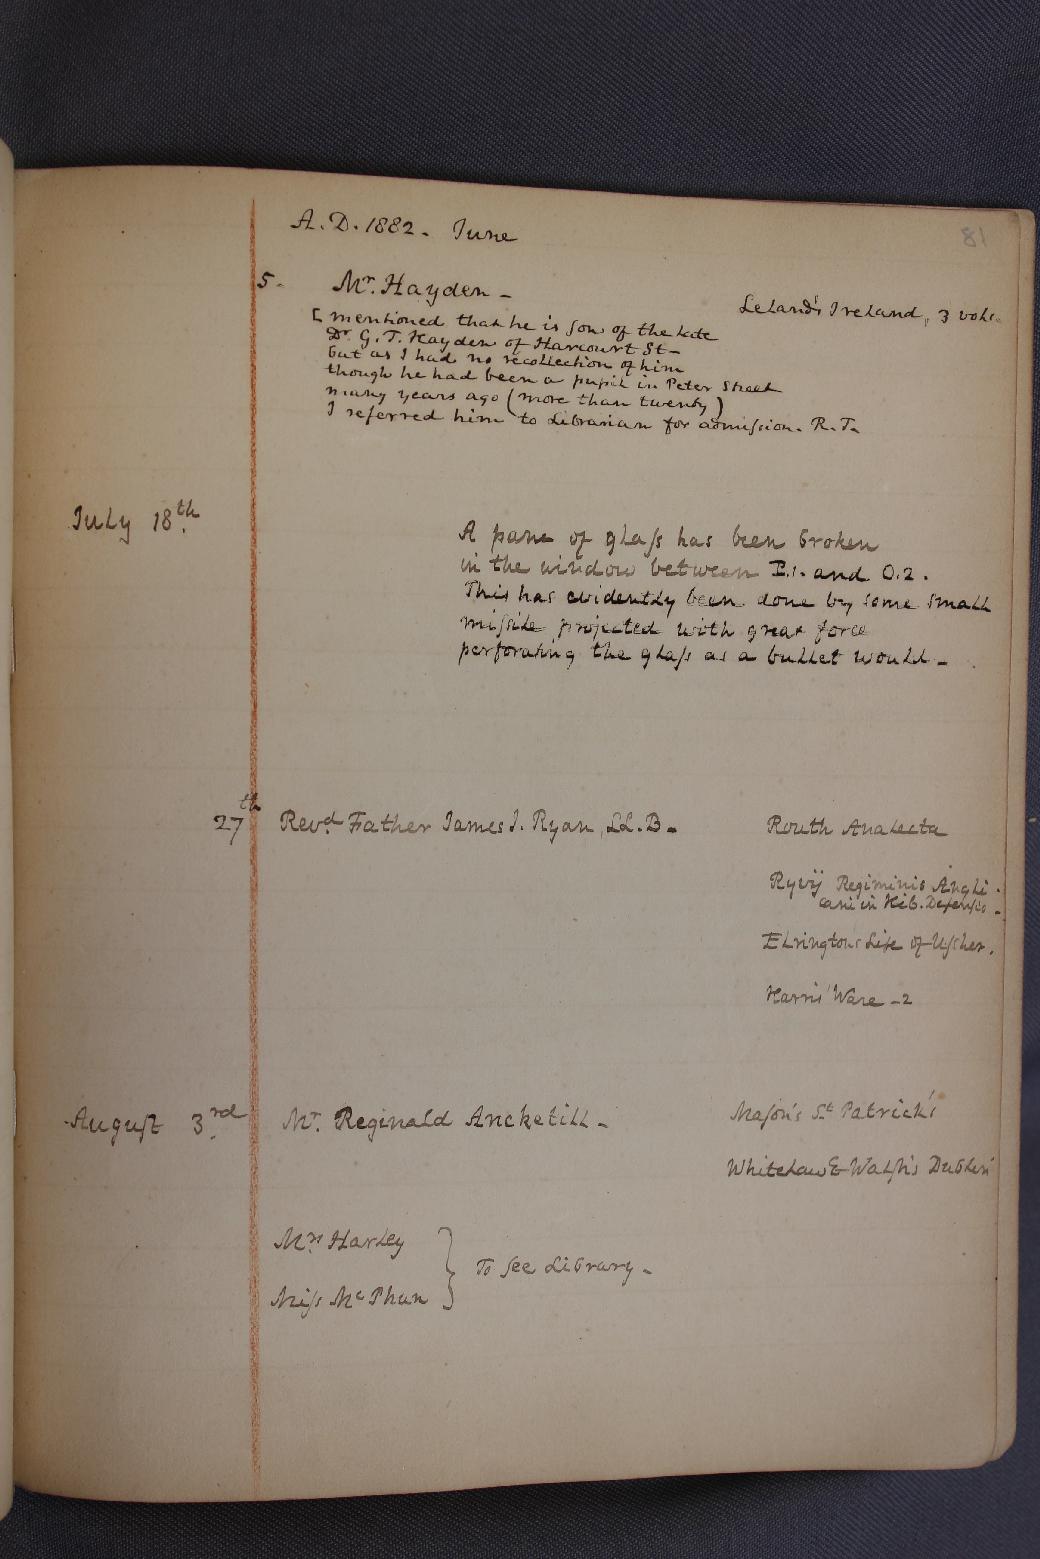 81
A. D. 1882. June
5. Mr. Hayden - Leland's Ireland, 3 vols.
[mentioned that he is son of the late
Dr. G. T. Hayden of Harcourt St-
but as I had no recollection of him
though he had been a pupil in Peter Street
many years ago (more than twenty)
I referred him to Librarian for admission. R. T.
July 18th.
A pane of glass has been broken
in the window between E.1. and O.2.
This has evidently been done by some small
missile projected with great force
perforating the glass as a bullet would -
27th Revd. Father James J. Ryan, LL.B - Routh Analecta
Ryvij Regiminis Angli-
cani in Hib. Defensio -
Elrington's Life of Ussher.
Harris' Ware - 2
August 3rd. Mr. Reginald Ancketill - Mason's St Patrick's
Whitelaw & Walsh's Dublin
Mrs Harley
To see Library -
Miss McPhun